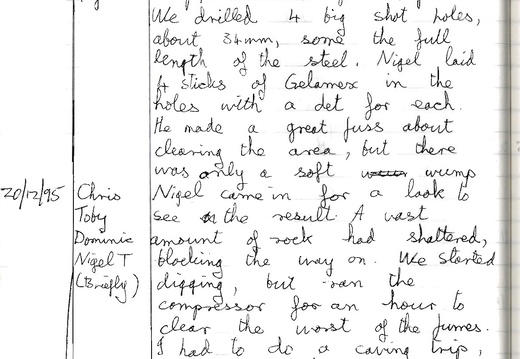 We drilled 4 big shot holes,
about 34mm, some the full
length of the steel. Nigel laid
4 sticks of Gelamex in the
holes with a det for each.
He made a great fuss about
clearing the area, but there
was only a soft wump
20/12/95 Chris Nigel came in for a look to
Toby see the result. A vast
Dominic amount of rock had shattered,
Nigel T blocking the way on. We started
(Briefly) digging, but ran the
compressor for an hour to
clear the worst of the fumes.
I had to do a caving trip,